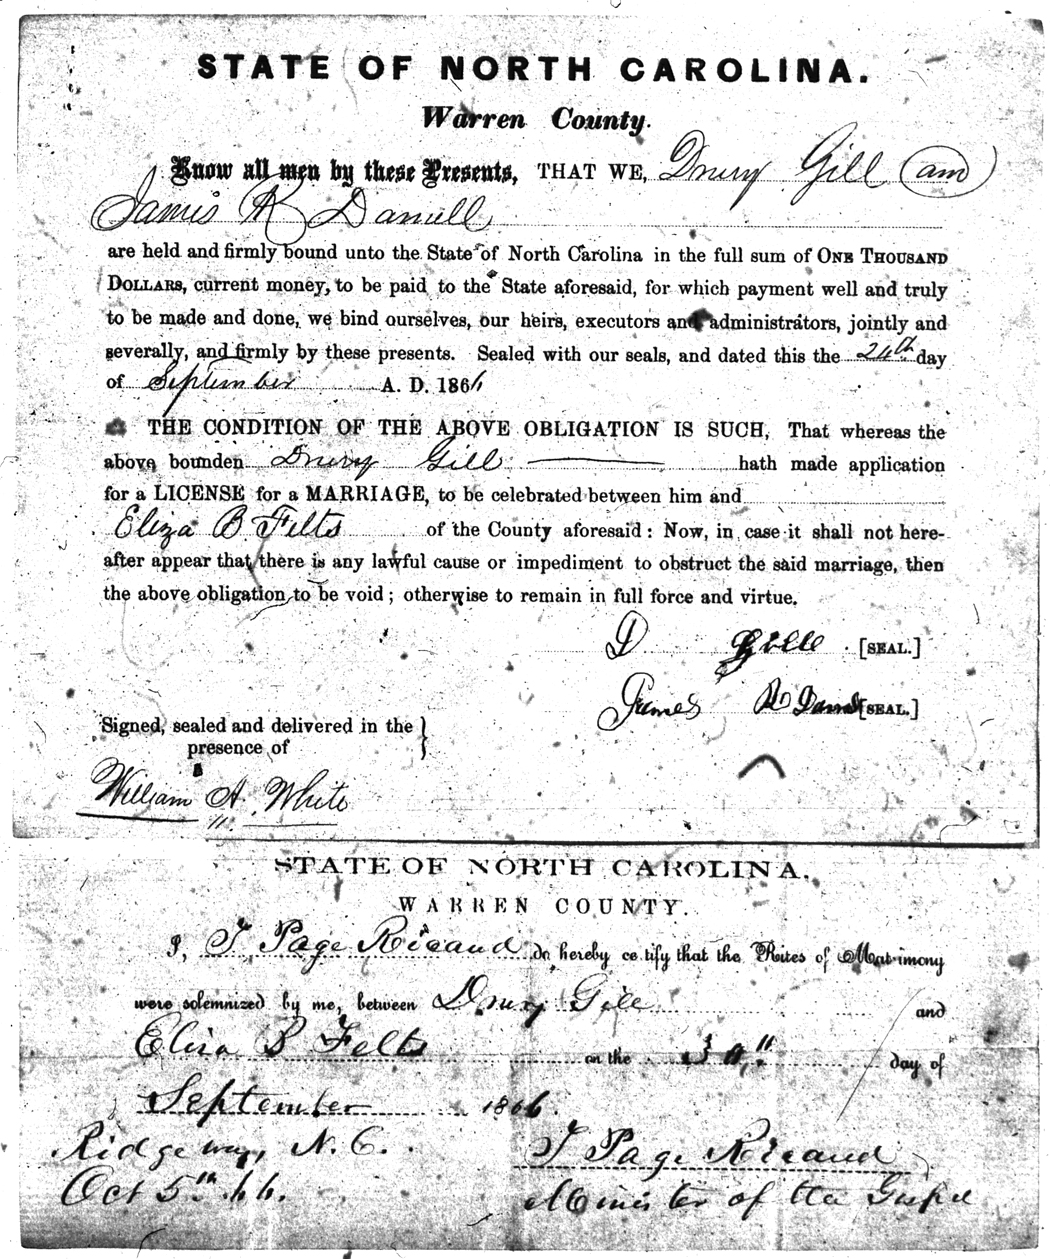 STATE OF NORTH CAROLINA.
Warren County.
Know all men by these Presents, THAT WE, Drury Gill and
James R Darnell
are held and firmly bound unto the State of North Carolina in the full sum of ONE THOUSAND
DOLLARS, current money, to be paid to the State aforesaid, for which payment well and truly
to be made and done, we bind ourselves, our heirs, executors and administrators, jointly and
severally, and firmly by these presents. Sealed with our seals, and dated this the 24th day
of September A. D. 1866
THE CONDITION OF THE ABOVE OBLIGATION IS SUCH, That whereas the
above bounden Drury Gill hath made application
for a LICENSE for a MARRIAGE, to be celebrated between him and
Eliza B Felts of the County aforesaid: Now, in case it shall not here-
after appear that there is any lawful cause or impediment to obstruct the said marriage, then
the above obligation to be void; otherwise to remain in full force and virtue.
D Gill [SEAL.]
James R [SEAL.]
Signed, sealed and delivered in the }
presence of
William A. White
STATE OF NORTH CAROLINA.
WARREN COUNTY.
I, T Page Ricaud do hereby certify that the Rites of Matrimony
were solemnized by me, between Drury Gill and
Eliza B Felts on the day of
September 1866.
Ridgeway, N. C. T Page Ricaud
Oct 5th 66. Minister of the Gospel